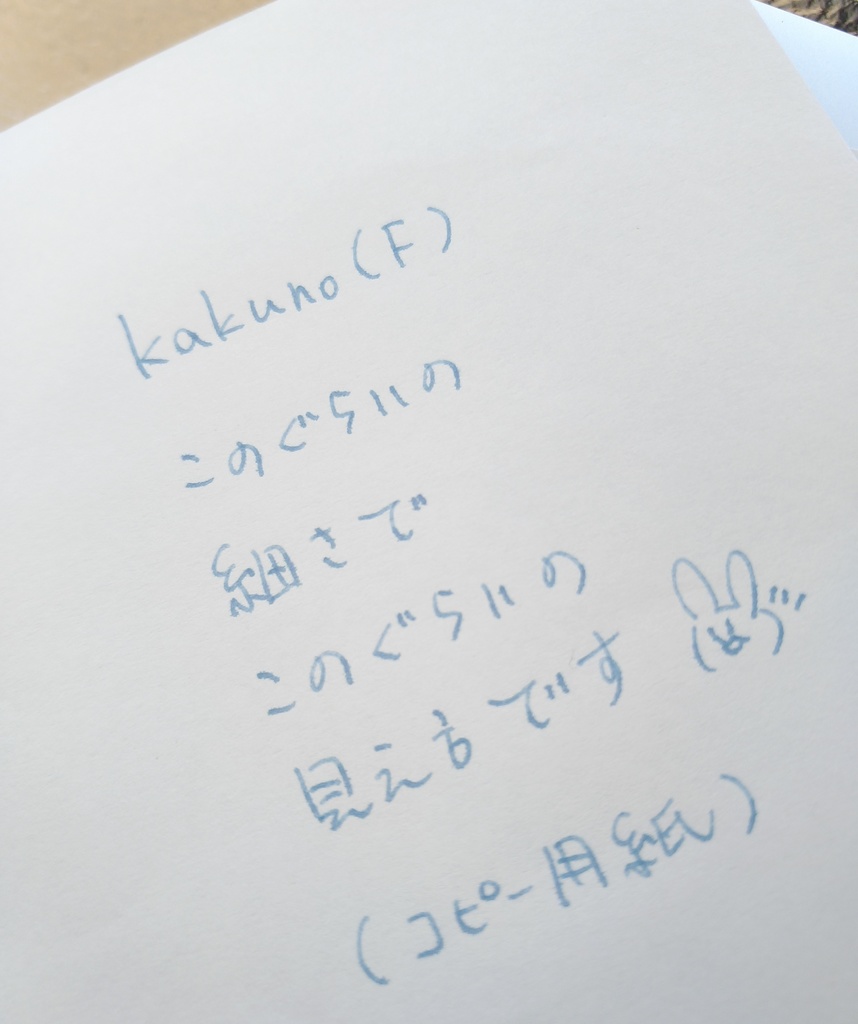 kakuno(F)
このぐらいの
細さで
このぐらいの
見え方です
(コピー用紙)